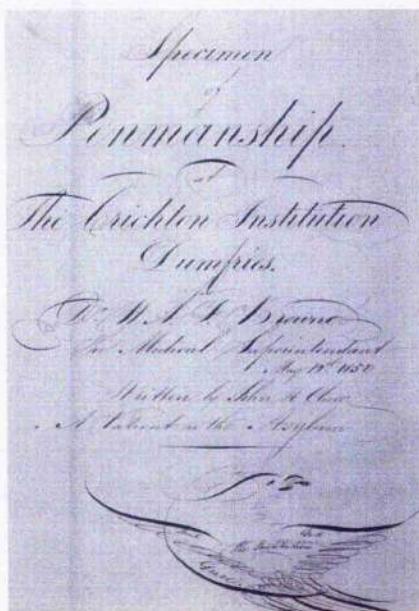 Specimen
of
Penmanship.
at
The Crichton Institution
Dumfries.
Dr W. A. F. Browne
The Medical Superintendant
May 1850
Written by John
A Patient in the Asylum
the Institution